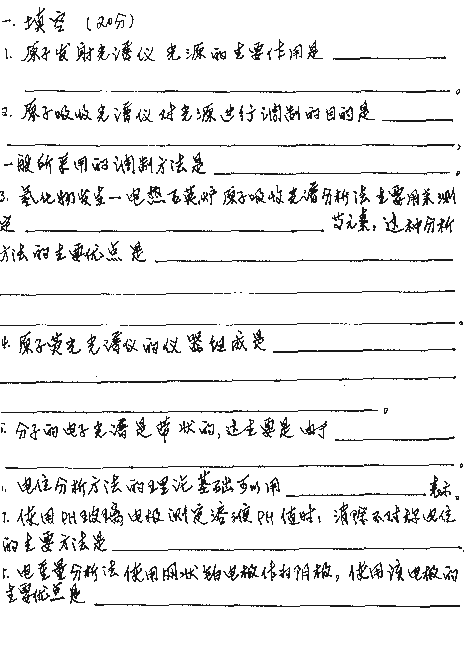 一. 填空 (20分)
1. 原子发射光谱仪光源的主要作用是
。
2. 原子吸收光谱仪对光源进行调制的目的是
,
一般所采用的调制方法是 。
3. 氢化物发生一电热石英炉原子吸收光谱分析法主要用来测
定 等元素,这种分析
方法的主要优点是
。
4. 原子荧光光谱仪的仪器组成是
。
5. 分子的电子光谱是带状的,这主要是由于
。
电位分析方法的理论基础可用 表示。
7. 使用PH玻璃电极测定溶液PH值时,消除不对称电位
的主要方法是
电重量分析法使用网状铂电极作为阴极,使用该电极的
主要优点是